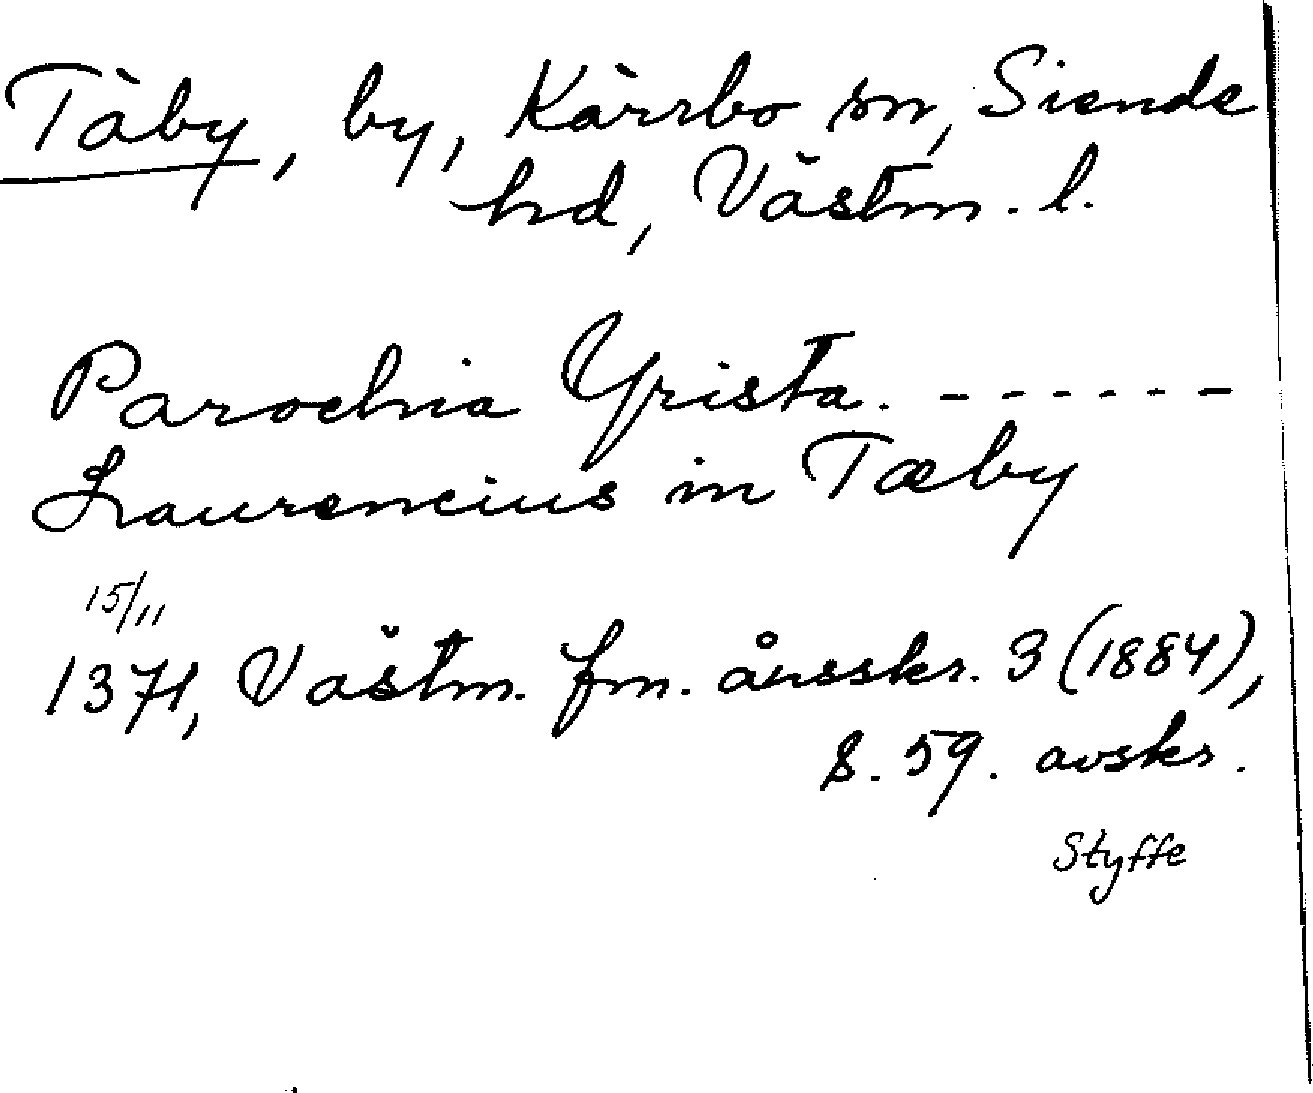 Täby, by, Kärrbo sn, Siende
hd, Västm. l.
Parochia Yrista. - - - - - -
Laurencius in Tæby
15/11
1371, Västm. fm. årsskr. 3 (1884),
s. 59. avskr.
Styffe